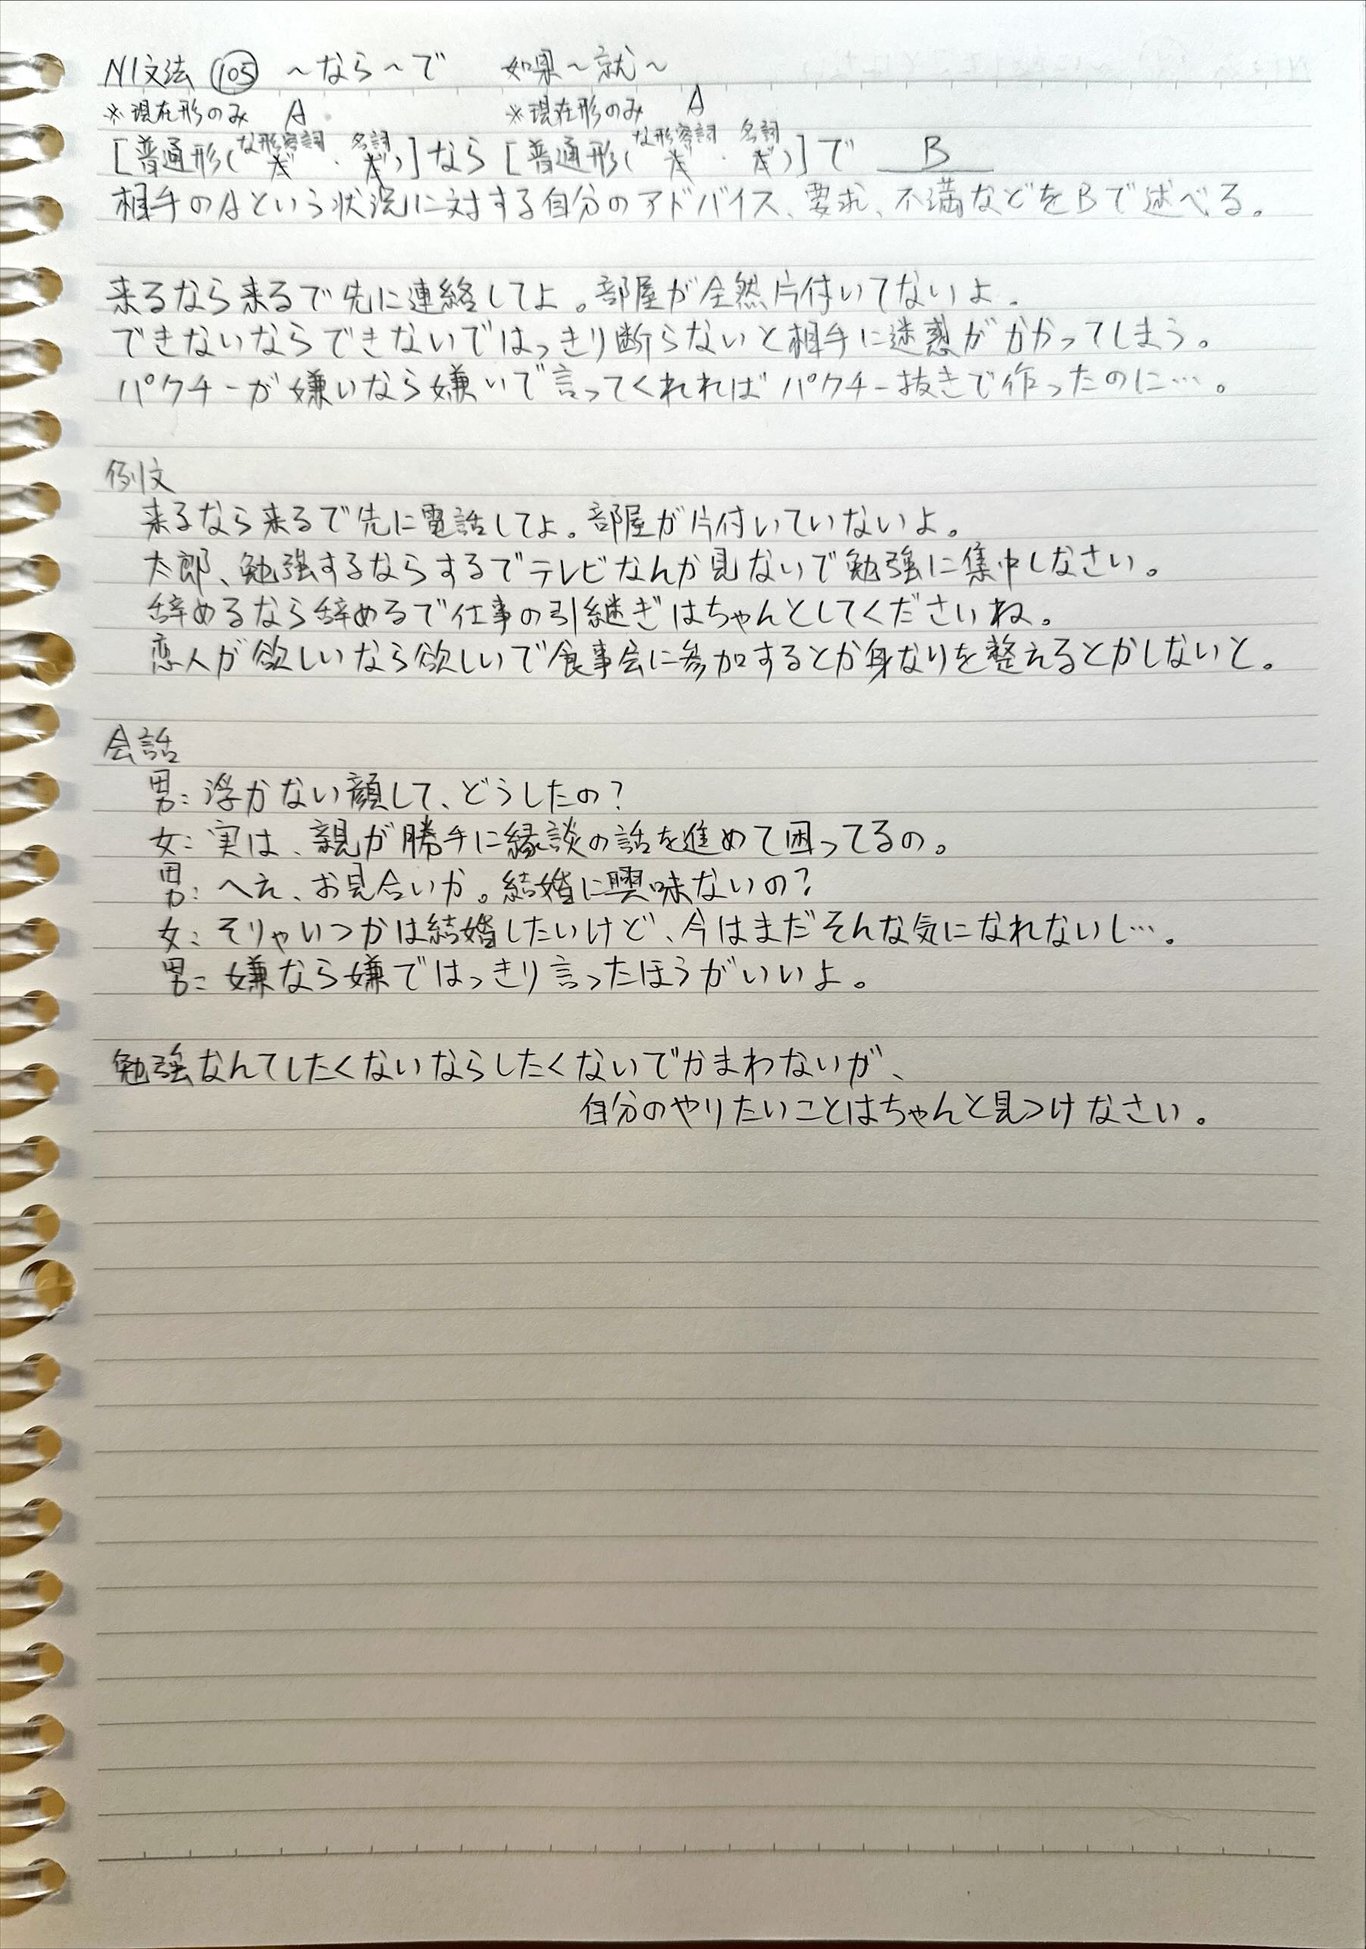 N1文法 105 ～なら～で 如果～就～
※現在形のみ A ※現在形のみ A
な形容詞 名詞 な形容詞 名詞
[普通形(だ・だ)]なら[普通形(だ・だ)]で B
相手のAという状況に対する自分のアドバイス、要求、不満などをBで述べる。
来るなら来るで先に連絡してよ。部屋が全然片付いてないよ。
できないならできないではっきり断らないと相手に迷惑がかかってしまう。
パクチーが嫌いなら嫌いで言ってくれればパクチー抜きで作ったのに…。
例文
来るなら来るで先に電話してよ。部屋が片付いていないよ。
太郎、勉強するならするでテレビなんか見ないで勉強に集中しなさい。
辞めるなら辞めるで仕事の引継ぎはちゃんとしてくださいね。
恋人が欲しいなら欲しいで食事会に参加するとか身なりを整えるとかしないと。
会話
男：浮かない顔して、どうしたの？
女：実は、親が勝手に縁談の話を進めて困ってるの。
男：へえ、お見合いか。結婚に興味ないの？
女：そりゃいつかは結婚したいけど、今はまだそんな気になれないし…。
男：嫌なら嫌ではっきり言ったほうがいいよ。
勉強なんてしたくないならしたくないでかまわないが、
自分のやりたいことはちゃんと見つけなさい。